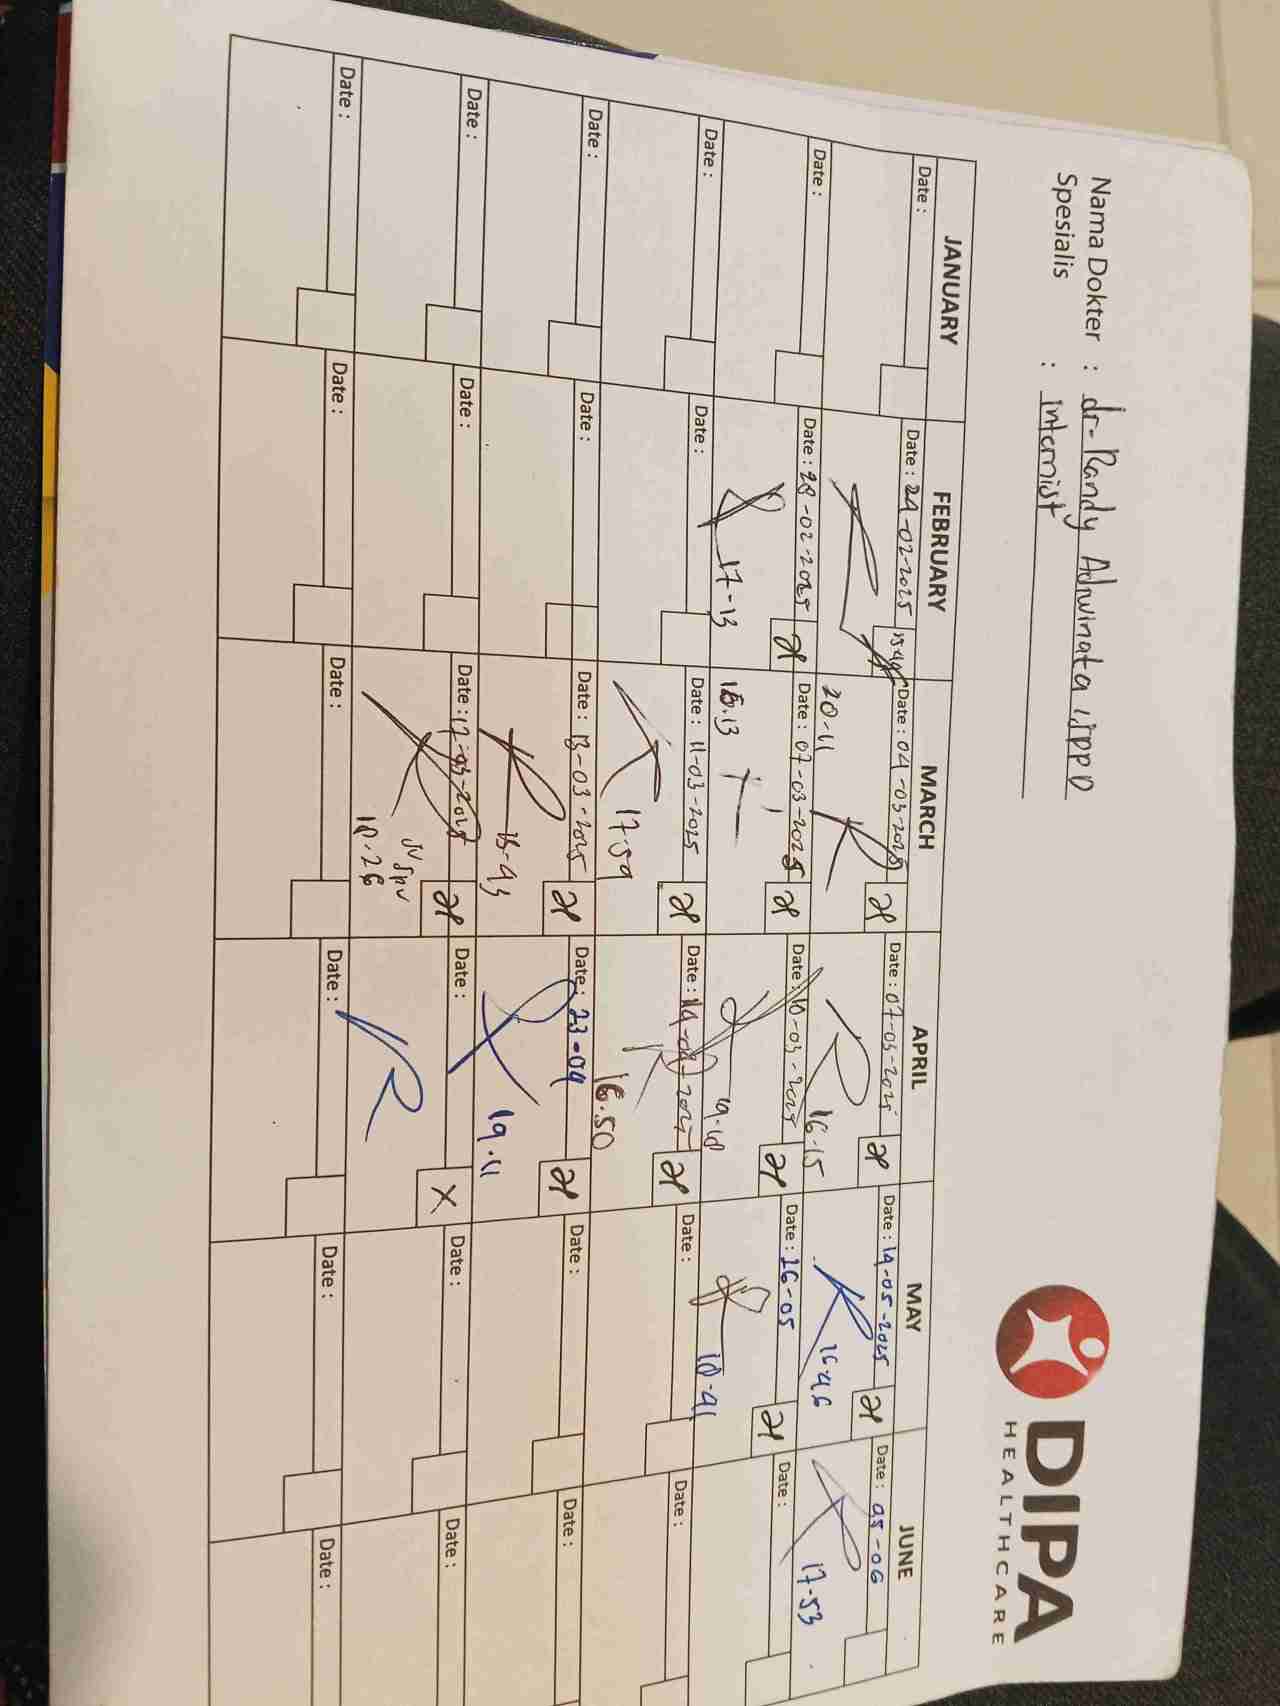 Nama Dokter : dr. Randy Adiwinata, SpPD
Spesialis : Internist
DIPA
HEALTHCARE
JANUARY FEBRUARY MARCH APRIL MAY JUNE
Date : Date : 24-02-2025 Date : 04-03-2025 Date : 07-03-2025 Date : 14-05-2025 Date : 05-06
20-11 16.15 16-46 17-53
Date : Date : 28-02-2025 Date : 07-03-2025 Date : 10-03-2025 Date : 26-05 Date :
17-13 18.13 19-18 18-41
Date : Date : Date : 11-03-2025 Date : 14-04-2025 Date : Date :
17-59 16.50
Date : Date : Date : 13-03-2025 Date : 23-04 Date : Date :
15-43 19.11
Date : Date : Date : 17-03-2025 Date : Date : Date :
X
18.26
Date : Date : Date : Date : Date : Date :